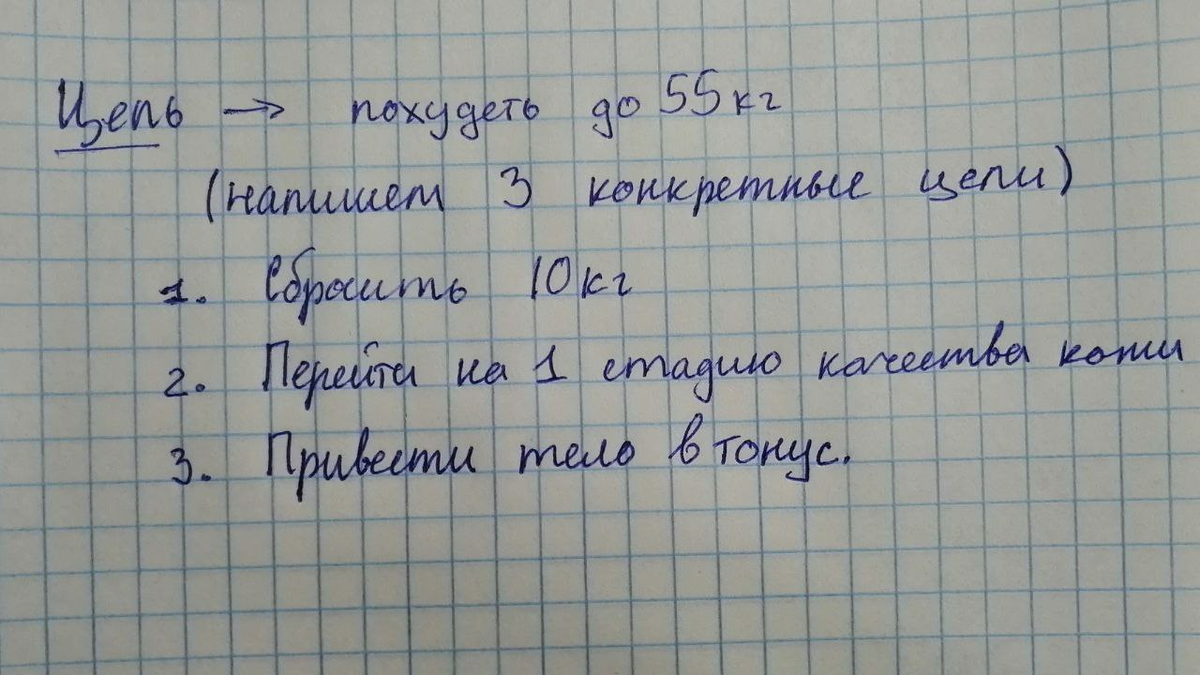 Цель → похудеть до 55 кг
(напишем 3 конкретные цели)
1. Сбросить 10 кг
2. Перейти на 1 стадию качества кожи
3. Привести тело в тонус.